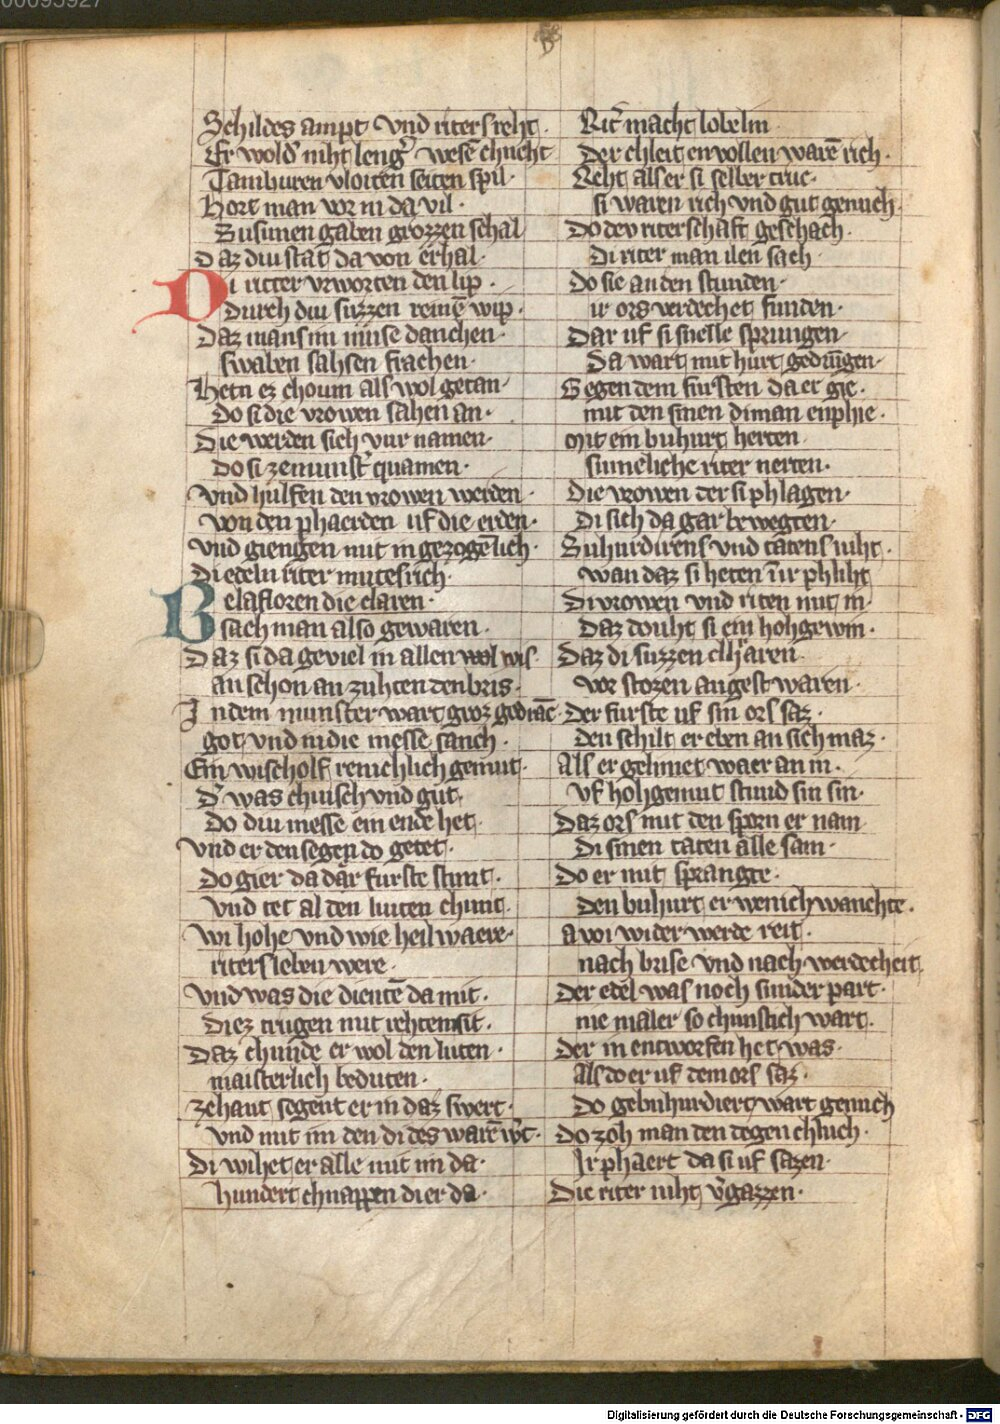 00095927
Schildes ampt vnd riters reht.
Er wold niht leng wesē chneht
Tamburen vloiten seiten spil.
Hort man vor in da vil.
Busunen gaben grozzen schal
Daz diu stat da von erhal.
Di ritter vrworten den lip.
Durch diu suzzen reinē wip.
Daz mans im muse danchen.
swaben sahsen frachen.
Hetn ez choum als wol getan.
Do si die vrowen sahen an.
Die werden sich vur namen.
Do si ze munster quamen.
Vnd hulfen den vrowen werden.
Von den phaerden uf die erden.
Vnd giengen mit in gezogēlich.
Di edeln riter mutes rich.
Belafloren die claren.
sach man also gewaren.
Daz si da geviel in allen wis.
an schon an zuhten den bris.
In dem munster wart groz gedrāc.
got vnd in die messe sanch.
Ein wischolf renichlich gemut.
D was chuisch vnd gut.
Do diu messe ein ende het.
Vnd er den segen do getet.
Do gier da dar furste stunt.
Vnd tet al den luiten chunt.
Wi hohe vnd wie heil waere.
riters leben were.
Vnd was die dientē da mit.
Diez trugen mit rehtem sit.
Daz chunde er wol den luten.
maisterlich beduten.
Zehant segent er in daz swert.
Vnd mit im den di des warē w̄t.
Di wihet er alle mit im da.
hundert chnappen di er da.
Rit macht lobelin
Der chleit en vollen warē rich.
Reht als er si selber truc.
si waren rich vnd gut genuch.
Do dev riterschaft geschach.
Di riter man ilen sach
Do sie an den stunden.
ir ors verdechet funden.
Dar uf si snelle sprungen.
Da wart mit hurt gedrūgen.
Gegen dem fursten da er gie.
mit den sinen di man enphie.
Mit ein buhurt herten
sumeliche riter nerten.
Die vrowen der si phlagen.
Di sich da gar bewegten.
Buhurdirens vnd tatens niht.
wan daz si heten ir phliht
Di vrowen vnd riten mit in.
Daz douht si ein hohgewin.
Daz di suzzen chlaren
vor stozen angest waren.
Der furste uf sin ors saz.
den schilt er eben an sich maz.
Als er gelimet waer an in.
Uf hohgemut stuid sin sin.
Daz ors mit den sporn er nam
Di sinen taten alle sam.
Do er mit sprangte.
den buhurt er wenich wanchte.
avoi wi der werde reit.
nach brise vnd nach werdecheit.
Der edel was noch sunder part.
nie maler so chunstich wart.
Der in entworfen het was.
Als do er uf dem ors saz.
Do gebuhurdiert wart genuch
Do zoh man den degen chluch.
Ir phaert da si uf sazen.
Die riter niht v̄gazzen.
Digitalisierung gefördert durch die Deutsche Forschungsgemeinschaft - DFG